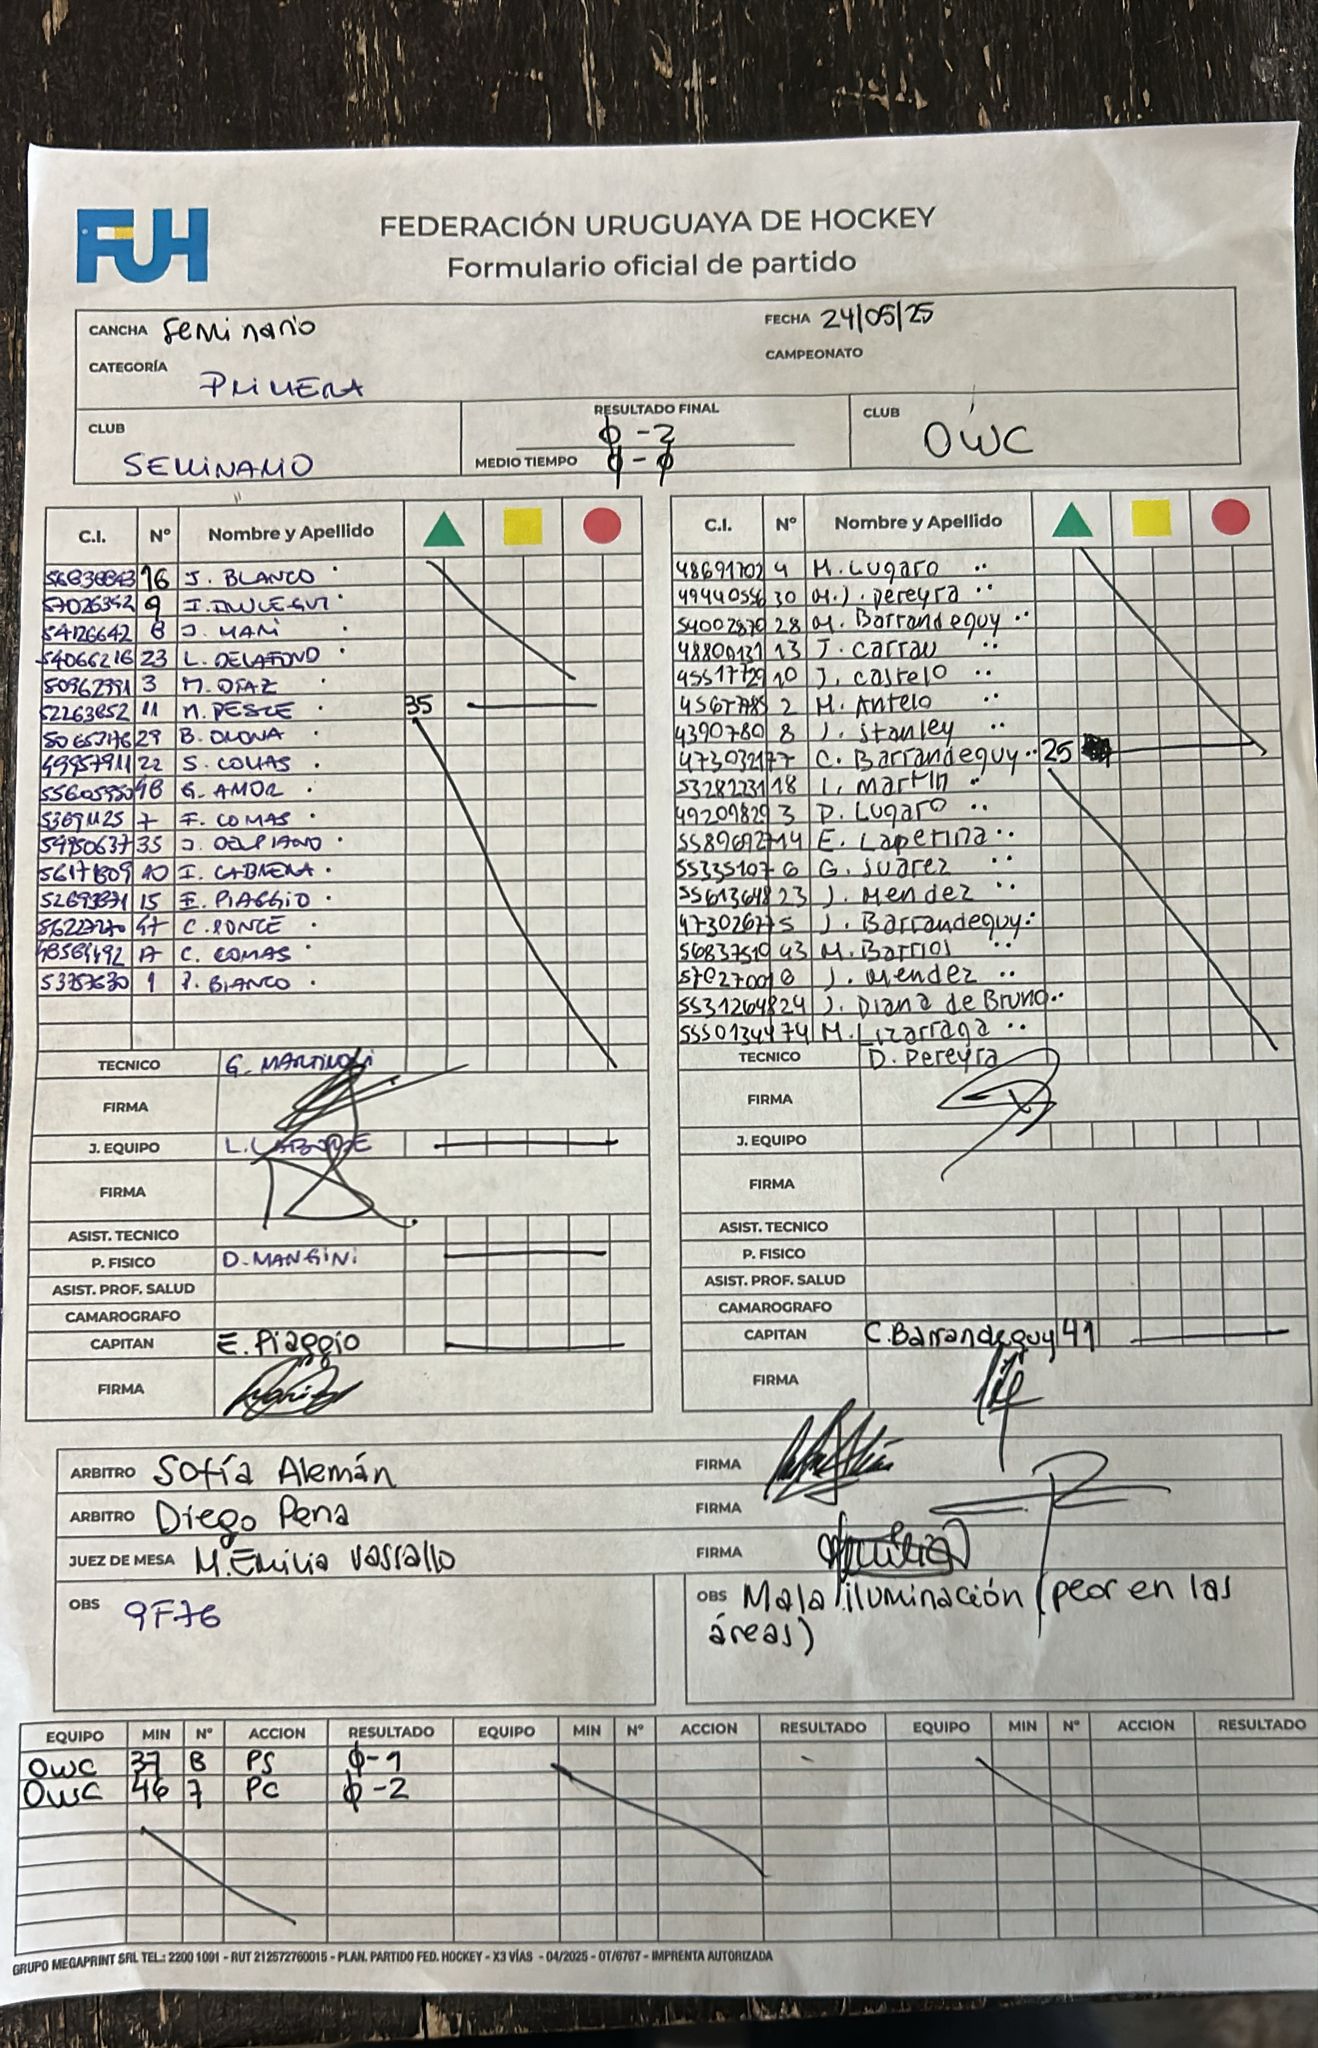 FUH
FEDERACIÓN URUGUAYA DE HOCKEY
Formulario oficial de partido
CANCHA Seminario FECHA 24/05/25
CATEGORÍA PRIMERA CAMPEONATO
CLUB SEMINARIO
RESULTADO FINAL 0-2
MEDIO TIEMPO 0-0
CLUB OWC
C.I. Nº Nombre y Apellido
16 J. BLANCO
9
54126642 8 J. MARI
54066216 23 L. DELAFOND
50962991 3 M. DIAZ
52263852 11 M. PESCE 35
29 B.
22 S. COMAS
18 G. AMOR
7 F. COMAS
54950637 35 J. DELPIANO
10 I. CABRERA
15 E. PIAGGIO
47 C. PONCE
17 C. COMAS
1 BLANCO
TECNICO G.
FIRMA
J. EQUIPO L.
FIRMA
ASIST. TECNICO
P. FISICO D. MANGINI
ASIST. PROF. SALUD
CAMAROGRAFO
CAPITAN E. Piaggio
FIRMA
C.I. Nº Nombre y Apellido
48691702 4 M. Lugaro
49440556 30 M.J. Pereyra
54002870 28 M. Barrandeguy
48800131 13 J. Carrau
10 J. Castelo
2 M. Antelo
4390780 8 J. Stanley
C. Barrandeguy 25
53282231 18 L. Martin
49209829 3 P. Lugaro
14 E. Laperina
6 G. Suarez
23 J. Mendez
5 J. Barrandeguy
43 M. Barrios
J. Mendez
24 J. Diana de Bruno
74 M. Lizarraga
TECNICO D. Pereyra
FIRMA
J. EQUIPO
FIRMA
ASIST. TECNICO
P. FISICO
ASIST. PROF. SALUD
CAMAROGRAFO
CAPITAN C. Barrandeguy 41
FIRMA
ARBITRO Sofía Alemán FIRMA
ARBITRO Diego Pena FIRMA
JUEZ DE MESA M. Emilia Vassallo FIRMA
OBS 9F76
OBS Mala iluminación (peor en las
áreas)
EQUIPO MIN Nº ACCION RESULTADO EQUIPO MIN Nº ACCION RESULTADO EQUIPO MIN Nº ACCION RESULTADO
OWC 37 8 PS 0-1
OWC 46 7 PC 0-2
GRUPO MEGAPRINT SRL TEL.: 2200 1091 - RUT 212572760015 - PLAN. PARTIDO FED. HOCKEY - X3 VÍAS - 04/2025 - OT/6767 - IMPRENTA AUTORIZADA